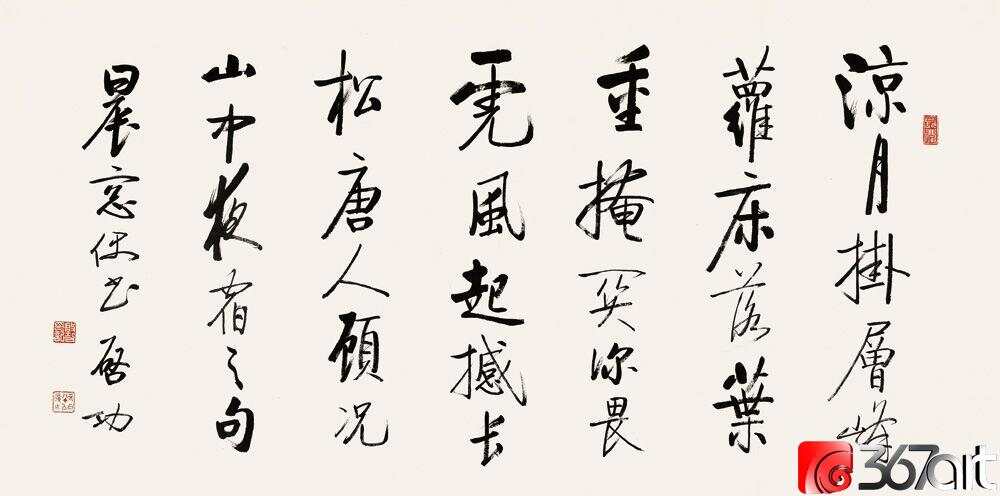 涼月掛層峰
蘿床落葉
重掩関深畏
虎風起撼長
松唐人顧況
山中夜宿之句
晨窓偶書 啓功
367art